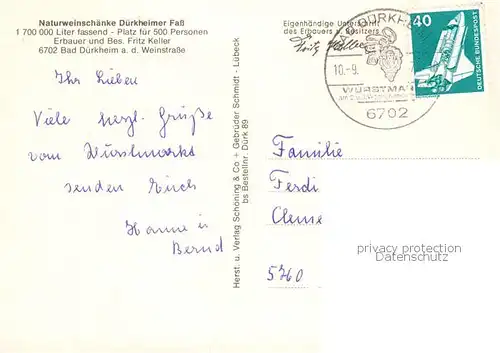 Naturweinschänke Dürkheimer Faß
1 700 000 Liter fassend - Platz für 500 Personen
Erbauer und Bes. Fritz Keller
6702 Bad Dürkheim a. d. Weinstraße
Ihr Lieben
Viele herzl. Grüße
vom Wurstmarkt
senden Euch
Hanne u
Bernd
Herst. u. Verlag Schöning & Co + Gebrüder Schmidt - Lübeck
bs Bestellnr. Dürk 89
Eigenhändige Unterschrift
des Erbauers u. Besitzers
Fritz Keller
BAD DÜRKHEIM
10.-9.
WURSTMA
6702
40
DEUTSCHE BUNDESPOST
Familie
Ferdi
Cleme
5760
privacy protection
Datenschutz